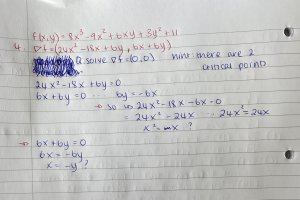 f(x,y) = 8x³ - 9x² + 6xy + 3y² + 11
4. ∇f = (24x² - 18x + 6y, 6x + 6y)
Q solve ∇f = (0,0). Hint: there are 2
critical point
24x² - 18x + 6y = 0
6x + 6y = 0 ... 6y = -6x
→ so 24x² - 18x - 6x = 0
= 24x² - 24x 24x² = 24x
x² = x ?
→ 6x + 6y = 0
6x = -6y
x = -y ?